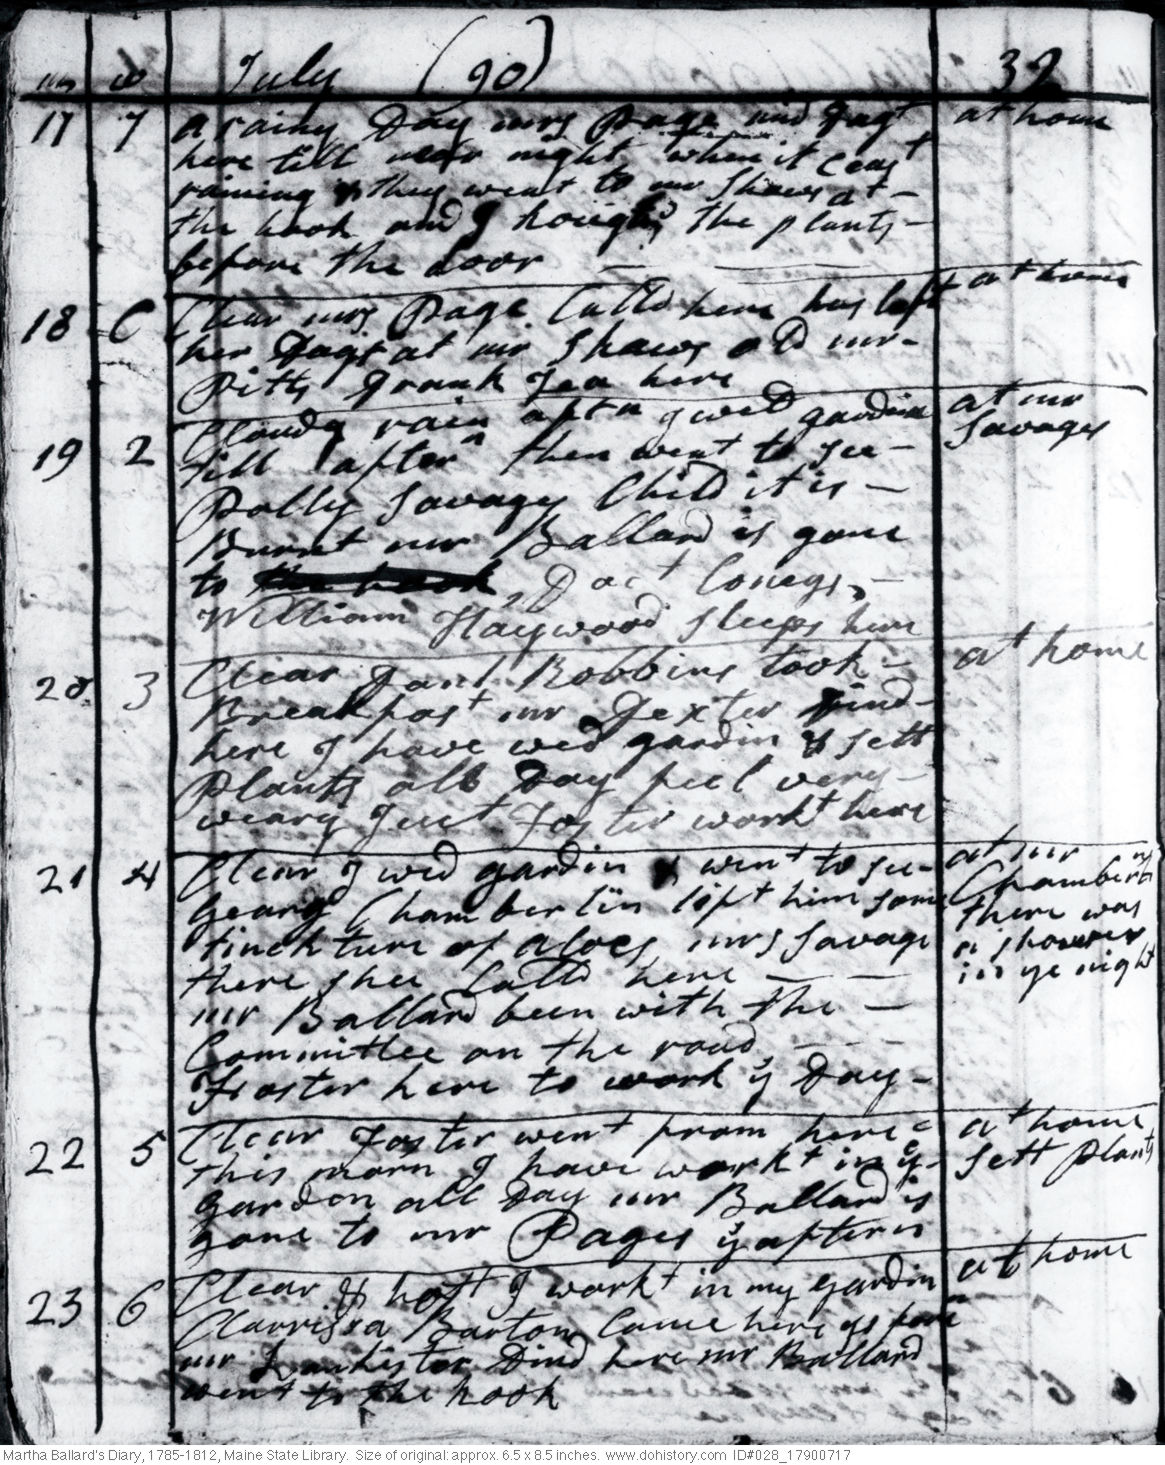 July (90) 32
17 7 a rainy Day mrs Page and Dagt at home
here till near night when it ceast
raining & they went to mr Shaws at
the hook and I houghd the plants
before the door
18 C Clear mrs Page Calld here has left at home
her Dagt at mr Shaws old mr
Pitts Drank Tea here
19 2 Cloudy rain aftn I wed gardin at mr
till aftern then went to see Savages
Polly Savages Child it is
Burnt mr Ballard is gone
to the hook, Doct Conegs,
William Haywood Sleeps here
20 3 Clear Jand Robbins took at home
Breakfast mr Dexter Dind
here I have wed gardin & sett
Plants all Day feel very
weary Just Foster workt here
21 4 Clear I wed gardin & went to see at mr
Georg Chamberlin left him some Chamberns
tinckture of aloes mrs Savage there was
there shee Calld here a shower
mr Ballard been with the in ye night
Committee on the road
Foster here to work y Day
22 5 Clear Foster went from here at home
this morn I have workt in ye Sett Plants
Gardon all Day mr Ballard is
gone to mr Pages ys aftern
23 6 Clear & hott I workt in my gardin at home
Clarrissa Barton Came here
mr Dind here mr Ballard
went to the hook
Martha Ballard's Diary, 1785-1812, Maine State Library. Size of original: approx. 6.5 x 8.5 inches. www.dohistory.com ID#028_17900717